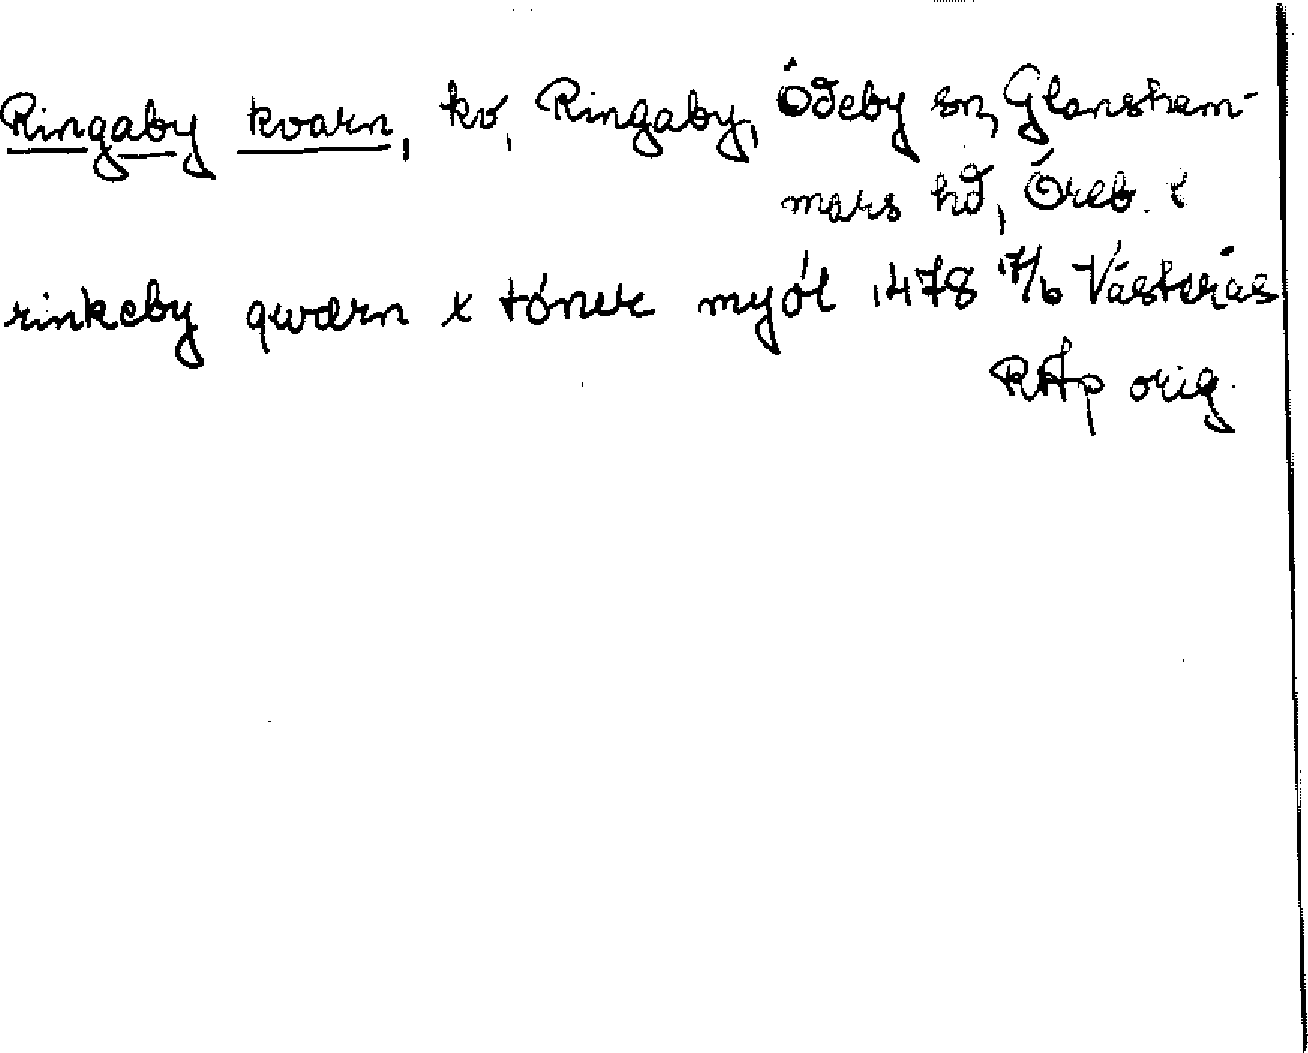 Ringaby kvarn, kv, Ringaby, Ödeby sn, Glansham-
mars hd, Öreb. l
rinkeby qwærn x töner myöl 1478 17/6 Västerås
RAp orig.